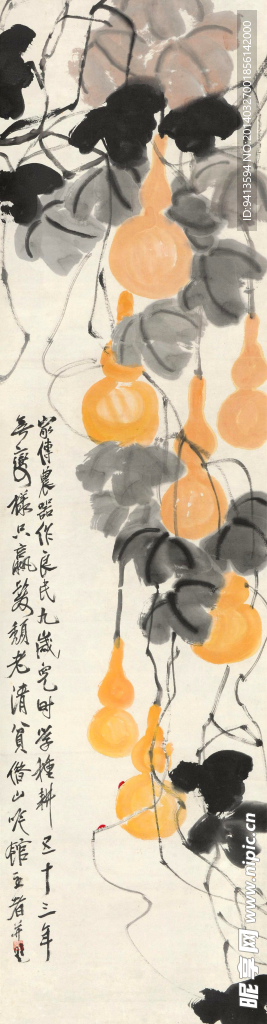 家傳農器作良民九歲兒時學種耕五十三年
無變樣只贏鬢顏老清貧借山吟館主者并題
ID:9413594 NO:20140327001856142000
昵享网 www.nipic.cn